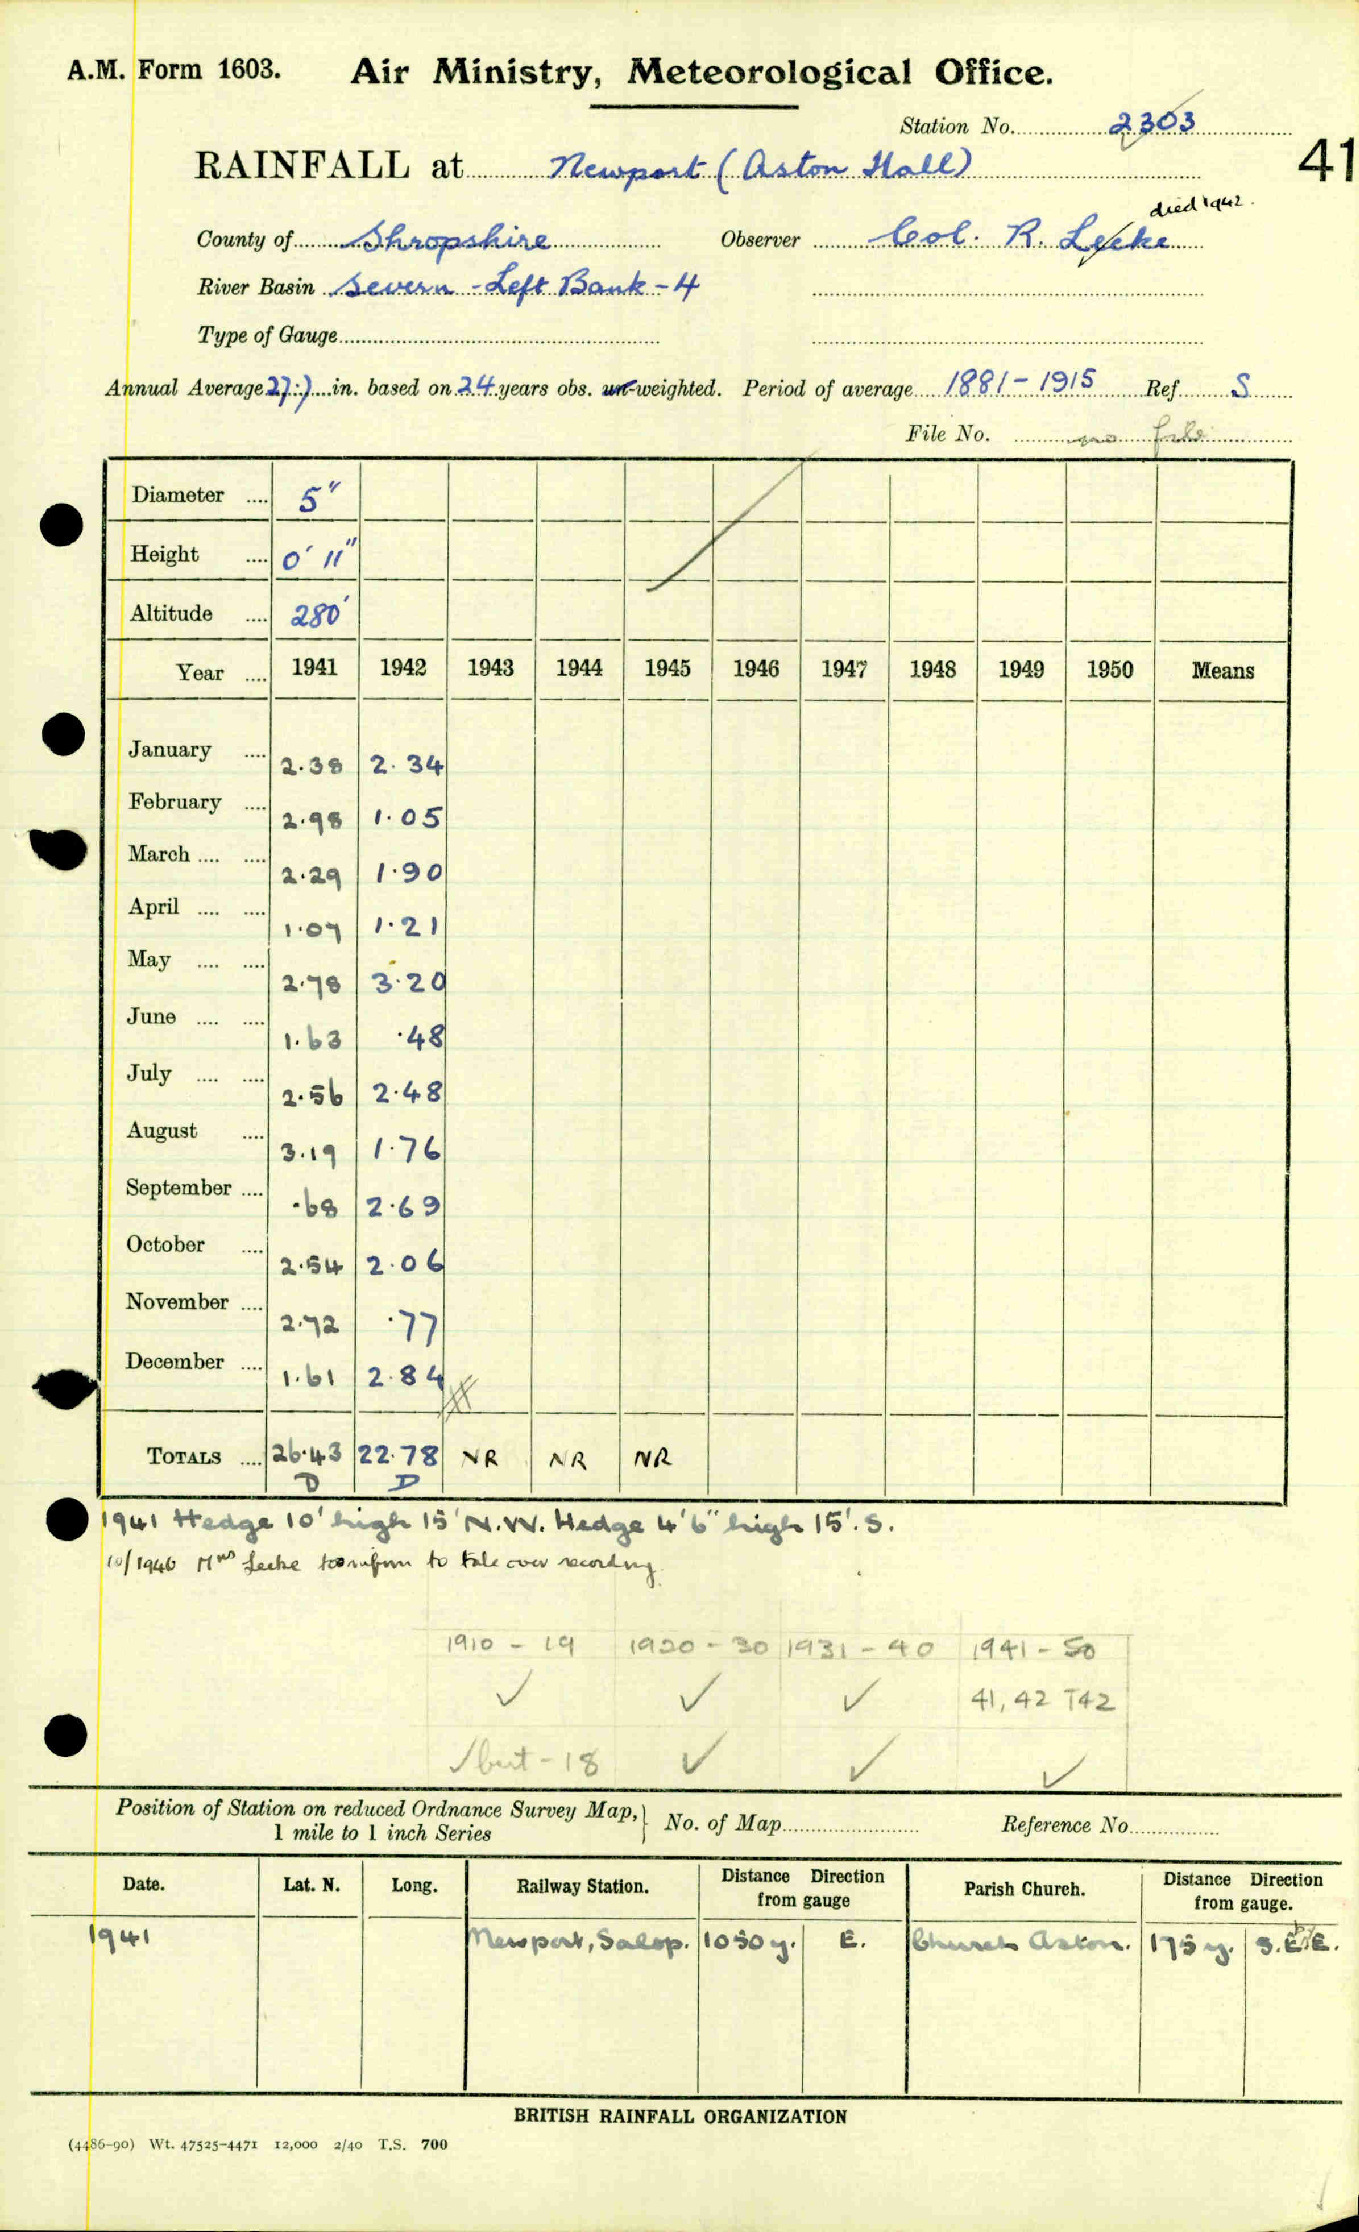 A.M. Form 1603. Air Ministry, Meteorological Office.
Station No. 2303
41
RAINFALL at Newport (Aston Hall)
died 1942.
County of Shropshire Observer Col. R. Leeke
River Basin Severn - Left Bank - 4
Type of Gauge
Annual Average 27.7 in. based on 24 years obs. un-weighted. Period of average 1881-1915 Ref. S
File No. no file
Diameter .... 5"
Height .... 0' 11"
Altitude .... 280'
Year .... 1941 1942 1943 1944 1945 1946 1947 1948 1949 1950 Means
January .... 2.38 2.34
February .... 2.98 1.05
March .... .... 2.29 1.90
April .... .... 1.07 1.21
May .... .... 2.78 3.20
June .... .... 1.63 .48
July .... .... 2.56 2.48
August .... 3.19 1.76
September .... .68 2.69
October .... 2.54 2.06
November .... 2.72 .77
December .... 1.61 2.84
TOTALS .... 26.43 22.78 NR NR NR
D D
1941 Hedge 10' high 15' N.W. Hedge 4'6" high 15'. S.
10/1946 Mrs Leeke to take over recording
1910 - 19 1920 - 30 1931 - 40 1941 - 50
✓ ✓ ✓ 41, 42 T42
✓ but - 18 ✓ ✓ ✓
Position of Station on reduced Ordnance Survey Map, 1 mile to 1 inch Series } No. of Map Reference No.
Date. Lat. N. Long. Railway Station. Distance Direction from gauge Parish Church. Distance Direction from gauge.
1941 Newport, Salop. 1050 y. E. Church Aston. 175 y. S.E. E.
BRITISH RAINFALL ORGANIZATION
(4486-90) Wt. 47525-4471 12,000 2/40 T.S. 700